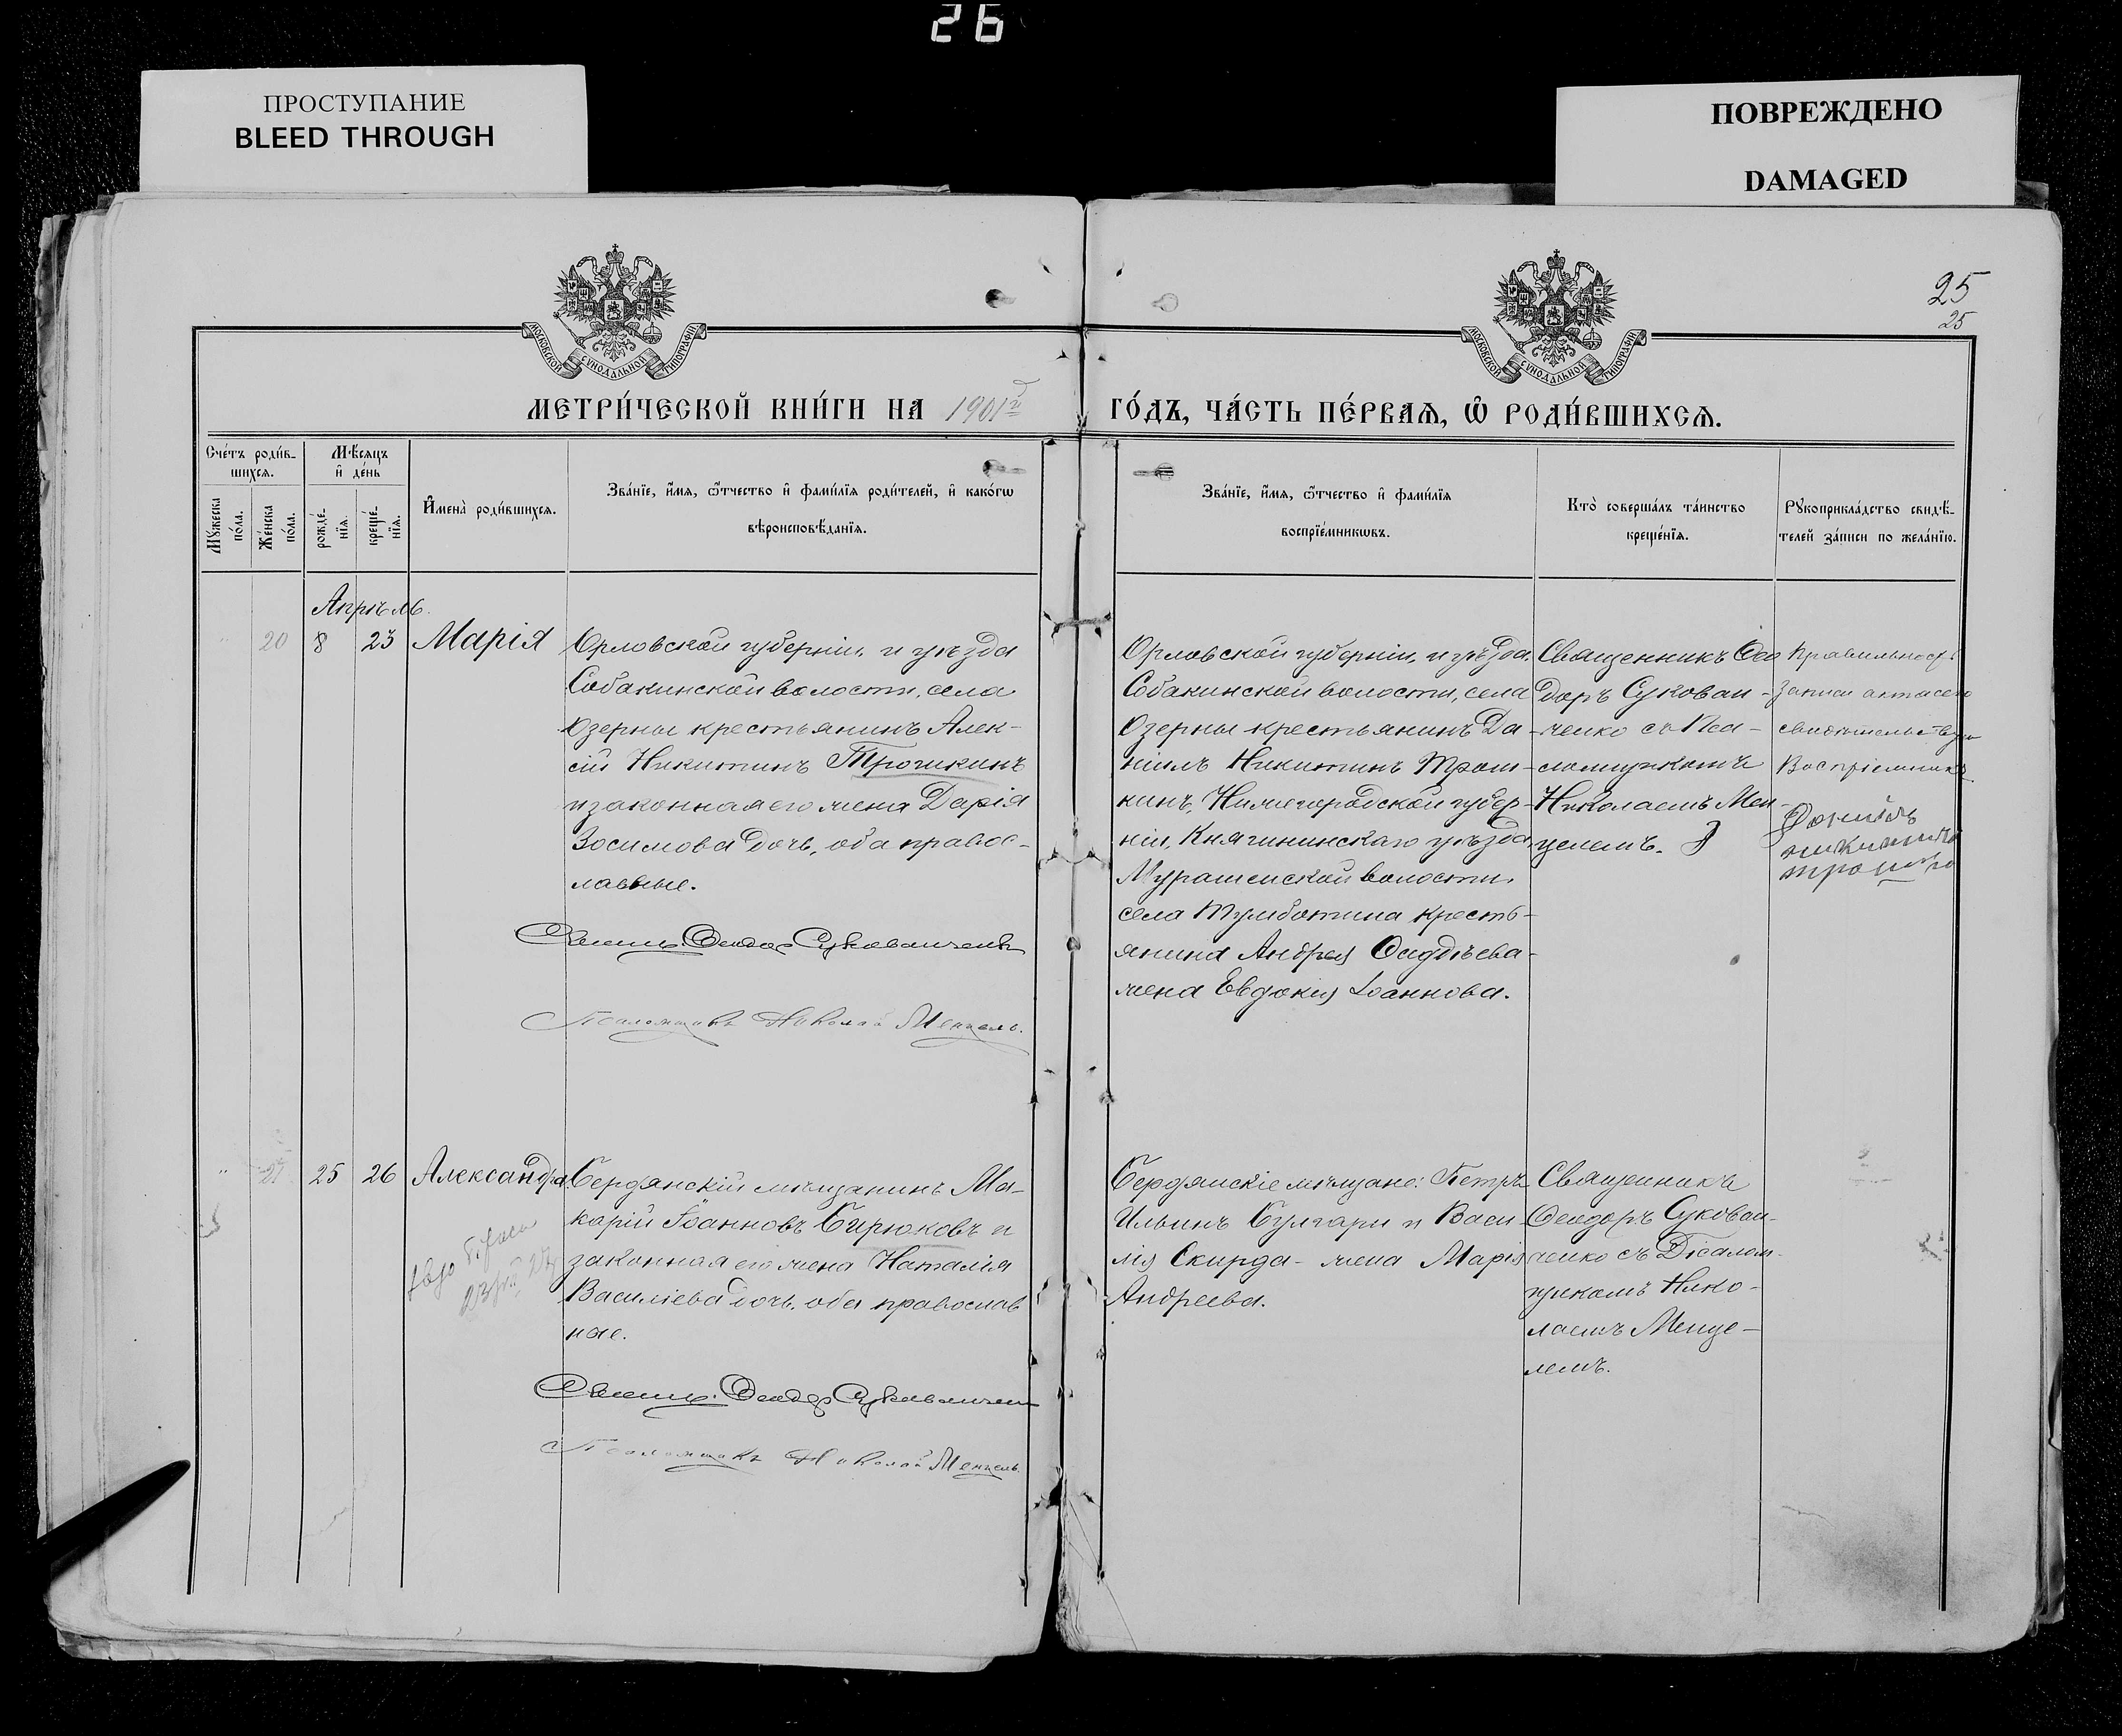 26
ПРОСТУПАНИЕ
BLEED THROUGH
ПОВРЕЖДЕНО
DAMAGED
25
25
МОСКОВСКОЙ СУНОДАЛЬНОЙ ТИПОГРАФІИ
МОСКОВСКОЙ СУНОДАЛЬНОЙ ТИПОГРАФІИ
МЕТРИ́ЧЕСКОЙ КНИ́ГИ НА 1901й
ГО́ДЪ, ЧА́СТЬ ПЕ́РВАѦ, Ѡ҆ РОДИ́ВШИХСѦ.
Сче́тъ роди́в-
шихсѧ.
Мꙋ́жеска
по́ла.
Же́нска
по́ла.
Мѣ́сѧцъ
и҆ де́нь
рожде́-
нїѧ.
креще́-
нїѧ.
И҆мена̀ роди́вшихсѧ.
Зва́нїе, и҆́мѧ, ѻ҆́тчество и҆ фами́лїѧ роди́телей, и҆ како́гѡ
вѣроисповѣ́данїѧ.
Зва́нїе, и҆́мѧ, ѻ҆́тчество и҆ фами́лїѧ
воспрїе́мникѡвъ.
Кто̀ соверша́лъ та́инство
креще́нїѧ.
Рꙋкоприкла́дство свидѣ́-
телей за́писи по жела́нїю.
Апрѣль.
" 20 8 23 Марія
Орловской губерніи, и уѣзда
Собакинской волости, села
Озерны крестьянинъ Алек-
сій Никитинъ Трошкинъ
и законная его жена Дарія
Зосимова дочь, оба правос-
лавные.
Священ. Ѳеодоръ Сукованченко
Псаломщикъ Николай Менцель.
Орловской губерніи, и уѣзда,
Собакинской волости, села
Озерны крестьянинъ Да-
ніилъ Никитинъ Трош-
кинъ, Нижегородской губер-
ніи, Княгининскаго уѣзда,
Мурашенской волости,
села Тумботина кресть-
янина Андрея
жена Евдокія Іоаннова.
Священникъ Ѳео
доръ Сукован-
ченко съ Пса-
ломщикомъ
Николаемъ Мен-
целемъ.
Правильность
записи акта сего
свидѣтельствую
Воспріемникъ
Данiилъ
никитинъ
" 21 25 26 Александра
Бердянскій мѣщанинъ Ма-
карій Іоанновъ Бирюковъ и
законная его жена Наталія
Василіева дочь, оба православ
ные.
Священ. Ѳеодоръ Сукованченко
Псаломщикъ Николай Менцель.
Бердянскіе мѣщане: Петръ
Ильинъ Булгари и Васи-
лія Скирда - жена Марія
Андреева.
Священникъ
Ѳеодоръ Сукован-
ченко съ Псалом-
щикомъ Нико-
лаемъ Менце-
лемъ.